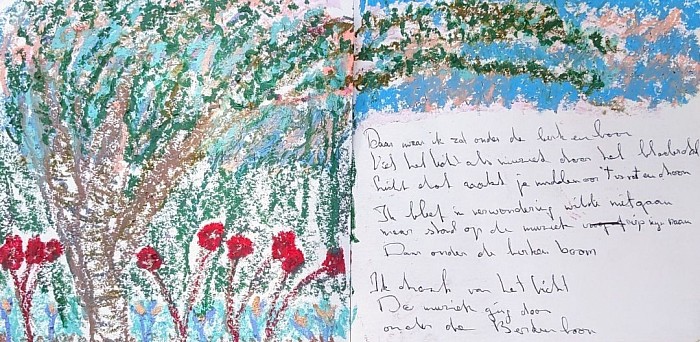 Daar waar ik zat onder de berkenboom
Viel het licht als muziek door het bladerdak
licht dat raakt je midden in
Ik bleef in verwondering wilde niet gaan
maar stond op de muziek riep mij aan
Daar onder de berken boom
Ik dronk van het licht
De muziek ging door
onder de Berkenboom